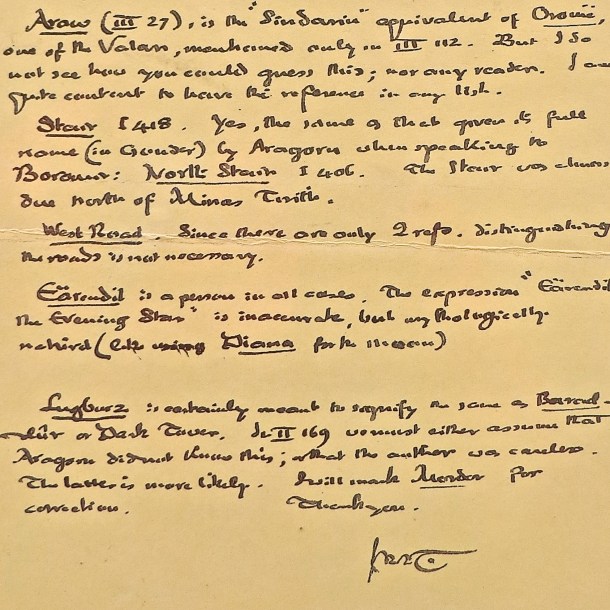 Araw (III 27), is the "Sindarin" equivalent of Oromë,
one of the Valar, mentioned only in III 112. But I do
not see how you could guess this; nor any reader. I am
quite content to leave the reference in any list.
Stair I 418. Yes, the same as that given its full
name (in Gondor) by Aragorn when speaking to
Boromir: North Stair I 406. The Stair was almost
due north of Minas Tirith.
West Road. Since there are only 2 refs. distinguishing
the roads is not necessary.
Eärendil is a person in all cases. The expression "Eärendil
the Evening Star" is inaccurate, but mythologically
natural (like using Diana for the moon)
Lugburz is certainly meant to signify the same as Barad-
dûr or Dark Tower. In II 169 we must either assume that
Aragorn did not know this; or that the author was careless.
The latter is more likely. I will mark Mordor for
correction. Thank you.
JRRT.